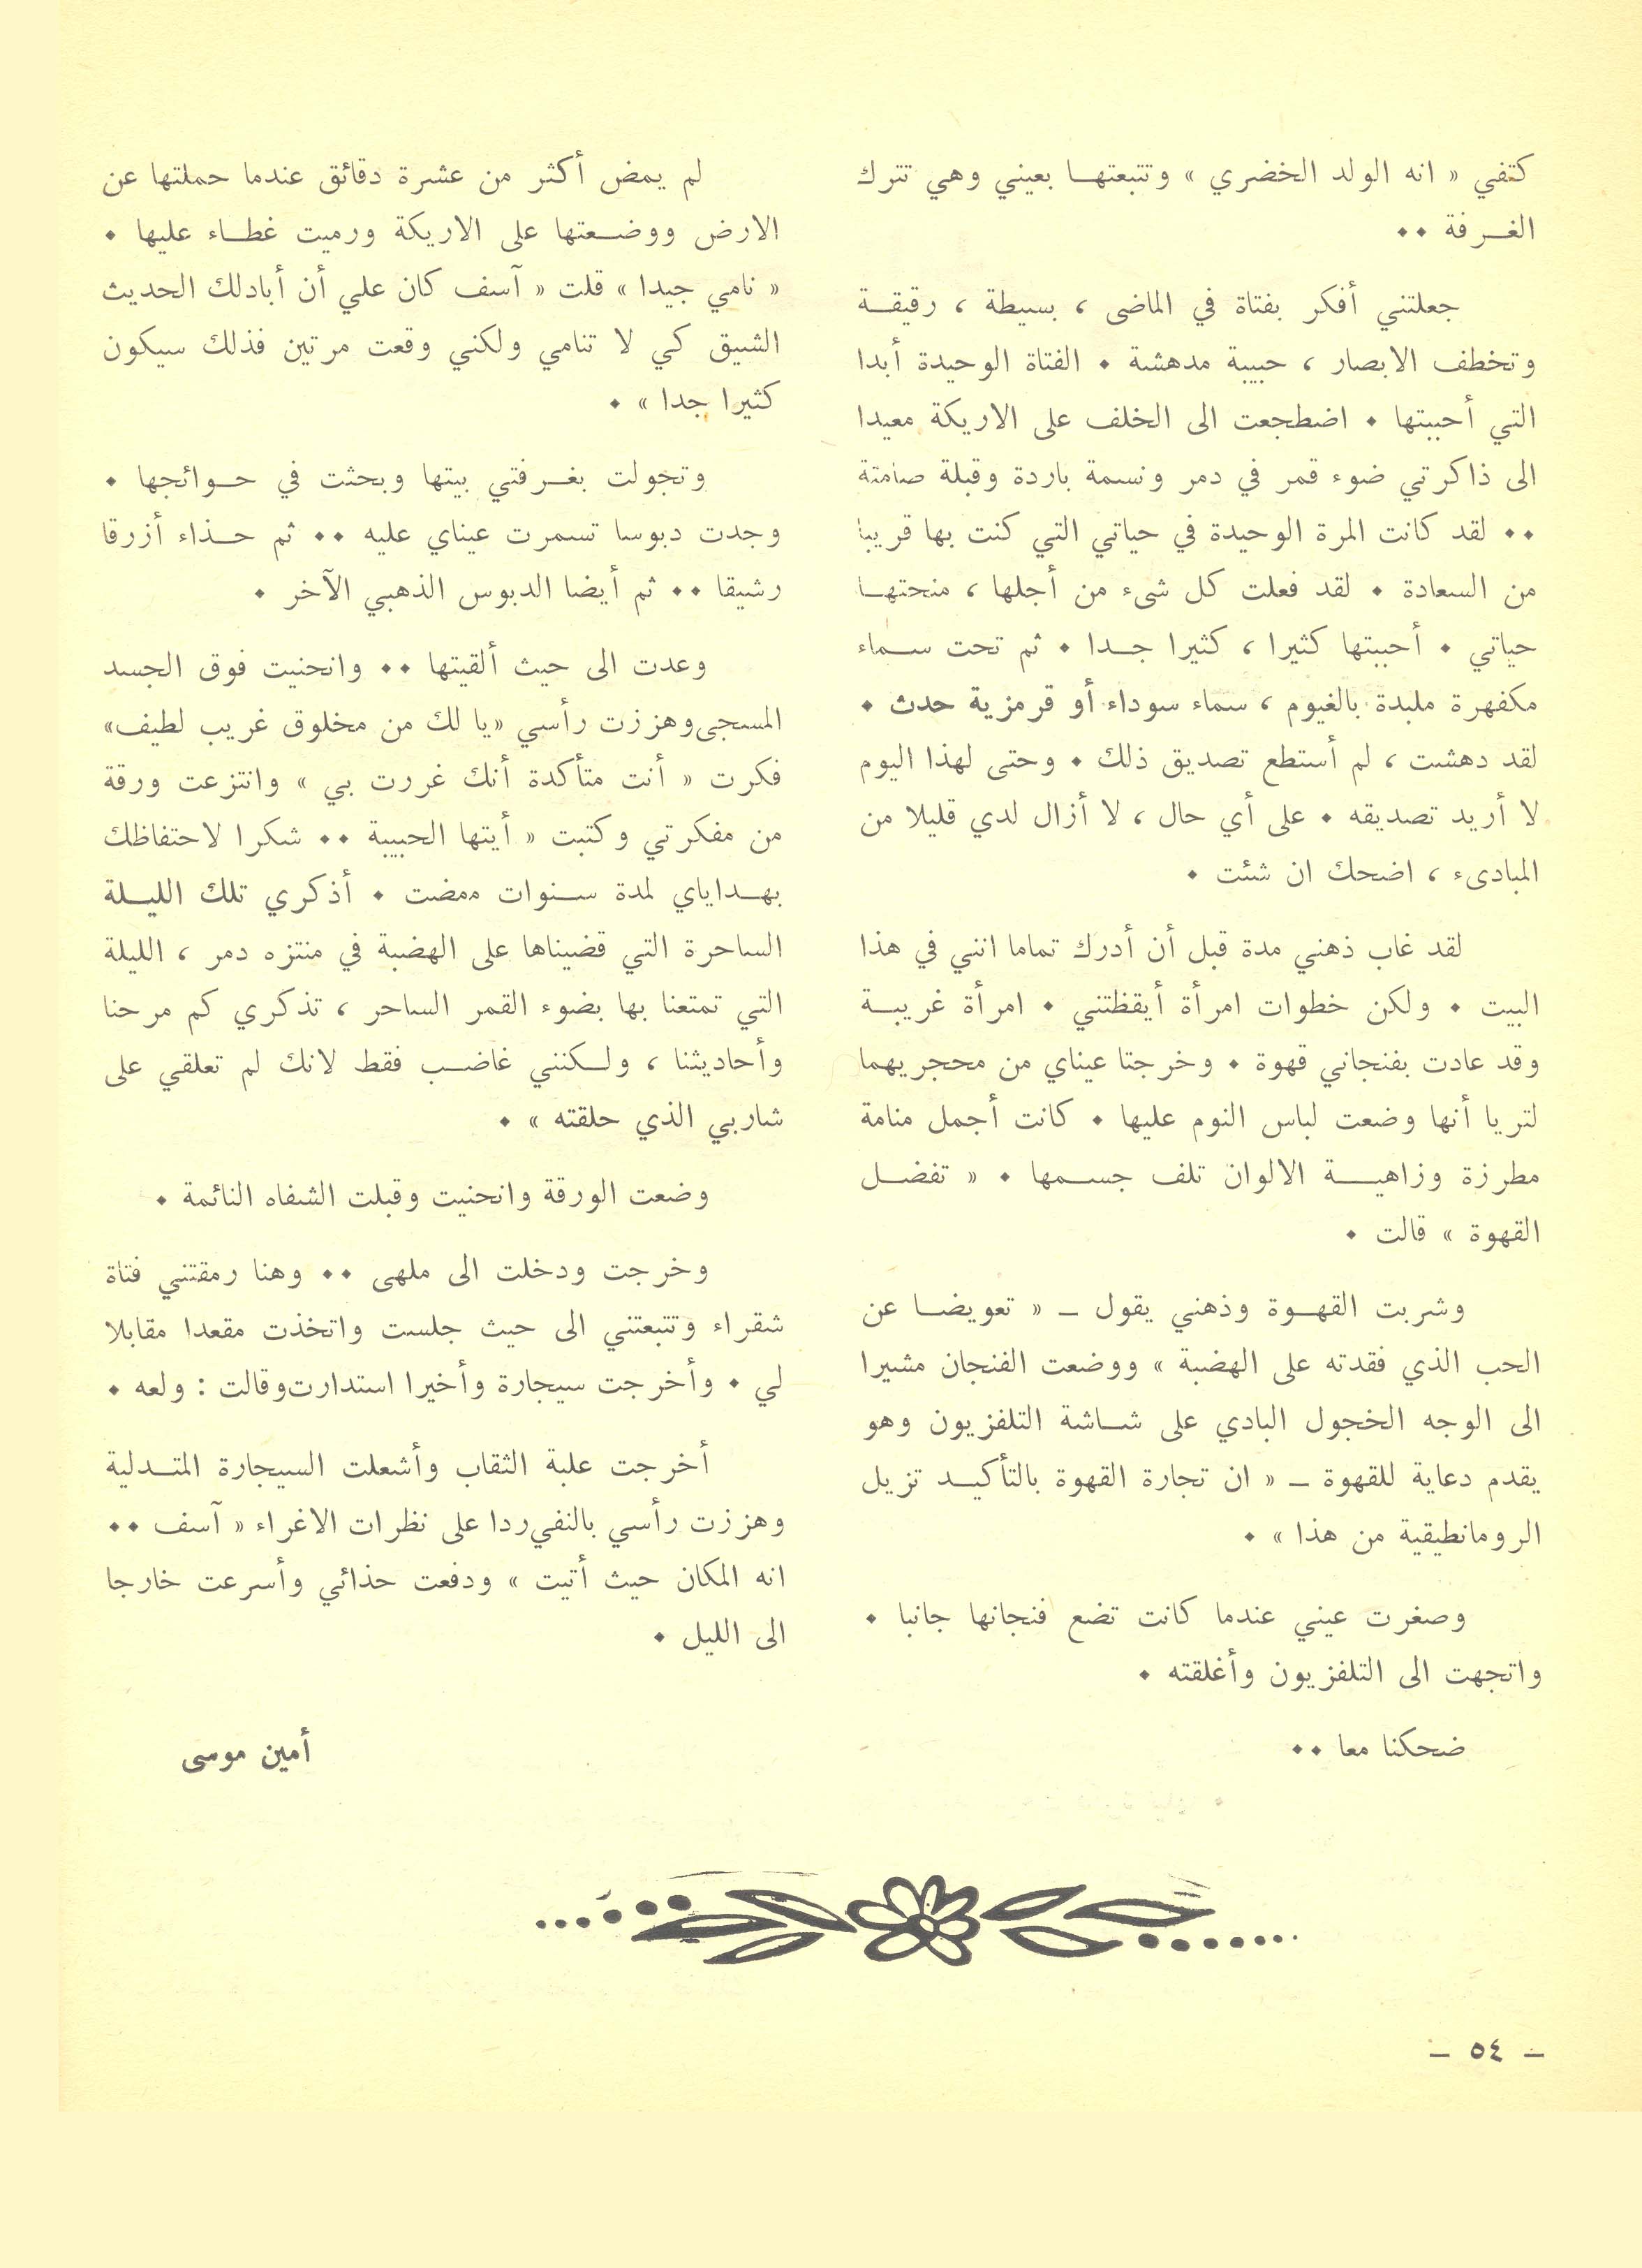 كتفي « انه الولد الخضري » وتتبعتهـا بعيني وهي تترك
الغـرفة ٠٠
جعلتني أفكر بفتاة في الماضى ، بسيطة ، رقيقـة
وتخطف الابصار ، حبيبة مدهشة ٠ الفتاة الوحيدة أبدا
التي أحببتها ٠ اضطجعت الى الخلف على الاريكة معيدا
الى ذاكرتي ضوء قمر في دمر ونسمة باردة وقبلة صامتة
٠٠ لقد كانت المرة الوحيدة في حياتي التي كنت بها قريبا
من السعادة ٠ لقد فعلت كل شىء من أجلها ، منحتهـا
حياتي ٠ أحببتها كثيرا ، كثيرا جـدا ٠ ثم تحت سـماء
مكفهرة ملبدة بالغيوم ، سماء سوداء أو قرمزية حدث ٠
لقد دهشت ، لم أستطع تصديق ذلك ٠ وحتى لهذا اليوم
لا أريد تصديقه ٠ على أي حال ، لا أزال لدي قليلا من
المبادىء ، اضحك ان شئت ٠
لقد غاب ذهني مدة قبل أن أدرك تماما انني في هذا
البيت ٠ ولكن خطوات امرأة أيقظتني ٠ امرأة غريبـة
وقد عادت بفنجاني قهوة ٠ وخرجتا عيناي من محجريهما
لتريا أنها وضعت لباس النوم عليها ٠ كانت أجمل منامة
مطرزة وزاهيـة الالوان تلف جسـمها ٠ « تفضـل
القهوة » قالت ٠
وشربت القهـوة وذهني يقول ـ « تعويضـا عن
الحب الذي فقدته على الهضبة » ووضعت الفنجان مشيرا
الى الوجه الخجول البادي على شـاشة التلفزيون وهو
يقدم دعاية للقهوة ـ « ان تجارة القهوة بالتأكيـد تزيل
الرومانطيقية من هذا » ٠
وصغرت عيني عندما كانت تضع فنجانها جانبا ٠
واتجهت الى التلفزيون وأغلقته ٠
ضحكنا معا ٠٠
لم يمض أكثر من عشرة دقائق عندما حملتها عن
الارض ووضـعتها على الاريكة ورميت غطـاء عليها ٠
« نامي جيدا » قلت « آسف كان علي أن أبادلك الحديث
الشيق كي لا تنامي ولكني وقعت مرتين فذلك سيكون
كثيرا جدا » ٠
وتجولت بغـرفتي بيتها وبحثت في حـوائجها ٠
وجدت دبوسا تسمرت عيناي عليه ٠٠ ثم حـذاء أزرقا
رشيقا ٠٠ ثم أيضا الدبوس الذهبي الآخر ٠
وعدت الى حيث ألقيتها ٠٠ وانحنيت فوق الجسد
المسجى وهززت رأسي «يا لك من مخلوق غريب لطيف»
فكرت « أنت متأكدة أنك غررت بي » وانتزعت ورقة
من مفكرتي وكتبت « أيتها الحبيبة ٠٠ شكرا لاحتفاظك
بهـداياي لمدة سـنوات ممضت ٠ أذكري تلك الليـلة
الساحرة التي قضيناها على الهضبة في منتزه دمر ، الليلة
التي تمتعنا بها بضوء القمر الساحر ، تذكري كم مرحنا
وأحاديثنا ، ولـكنني غاضـب فقط لانك لم تعلقي على
شاربي الذي حلقته » ٠
وضعت الورقة وانحنيت وقبلت الشفاه النائمة ٠
وخرجت ودخلت الى ملهى ٠٠ وهنا رمقتني فتاة
شقراء وتتبعتني الى حيث جلست واتخذت مقعدا مقابلا
لي ٠ وأخرجت سيجارة وأخيرا استدارت وقالت : ولعه ٠
أخرجت علبة الثقاب وأشعلت السيجارة المتـدلية
وهززت رأسي بالنفي ردا على نظرات الاغراء « آسف ٠٠
انه المكان حيث أتيت » ودفعت حذائي وأسرعت خارجا
الى الليل ٠
أمين موسى
ـ ٥٤ ـ